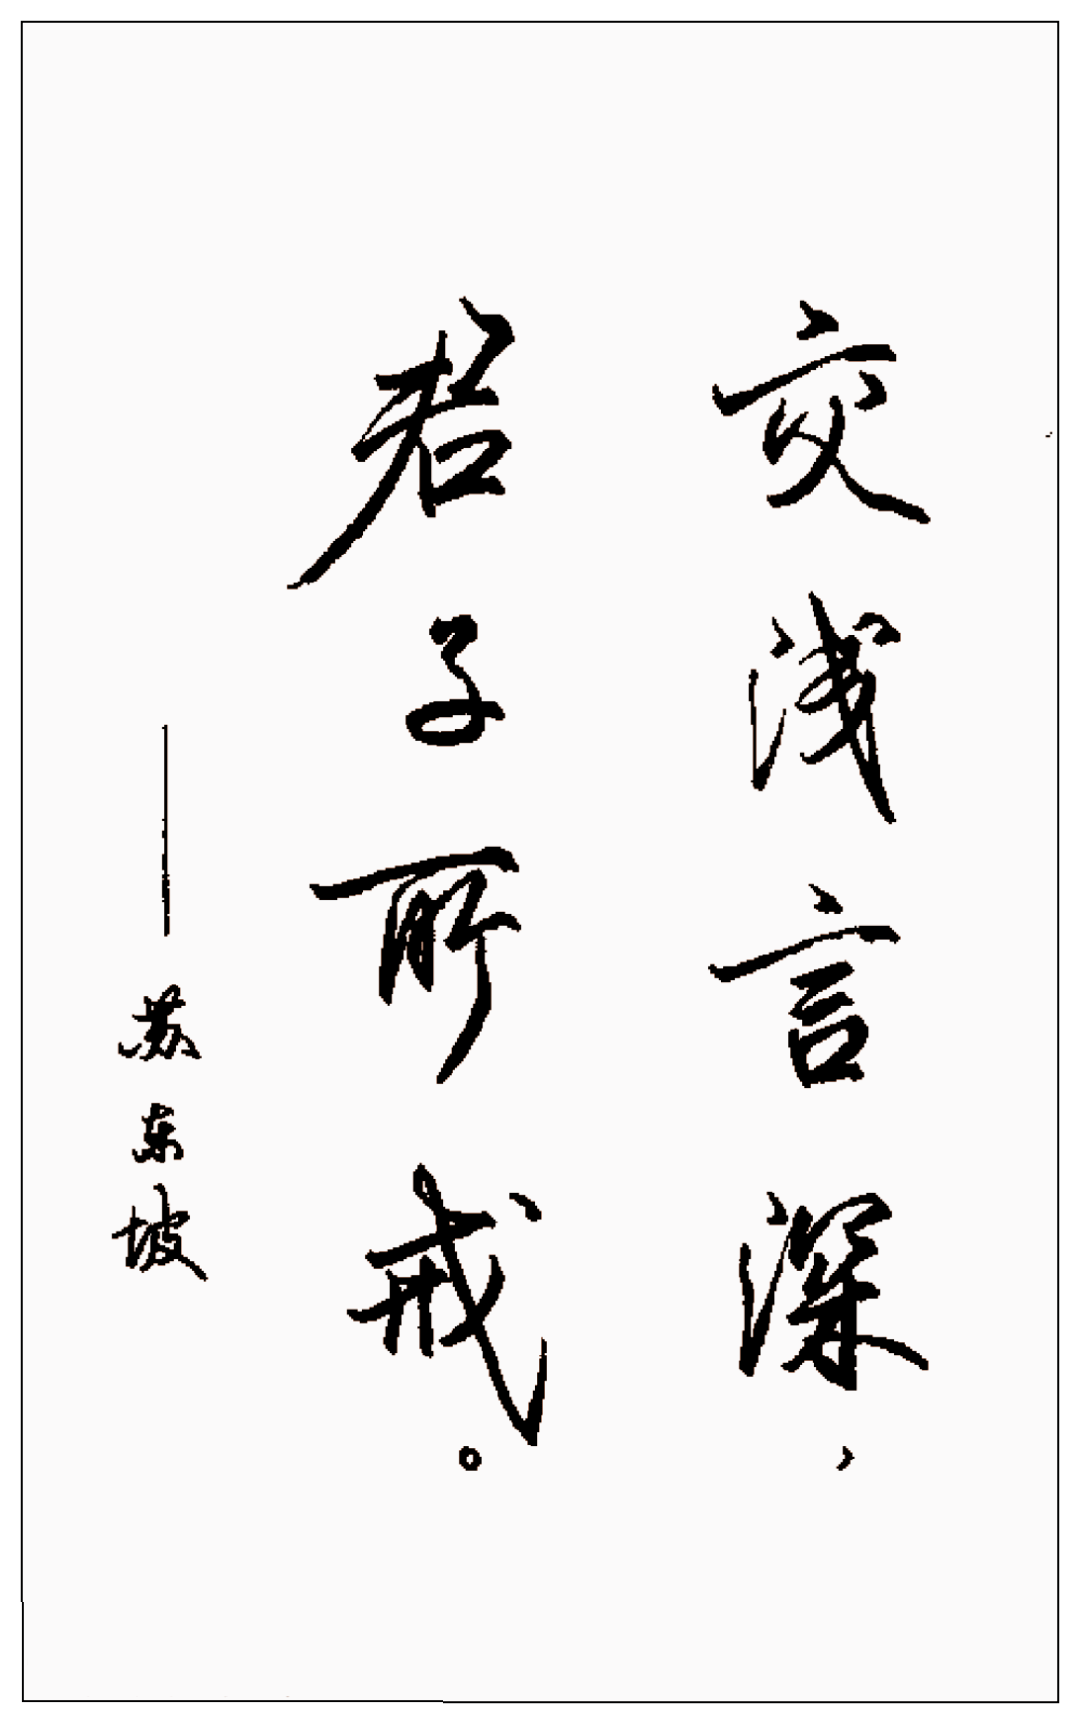 交浅言深，
君子所戒。
——苏东坡